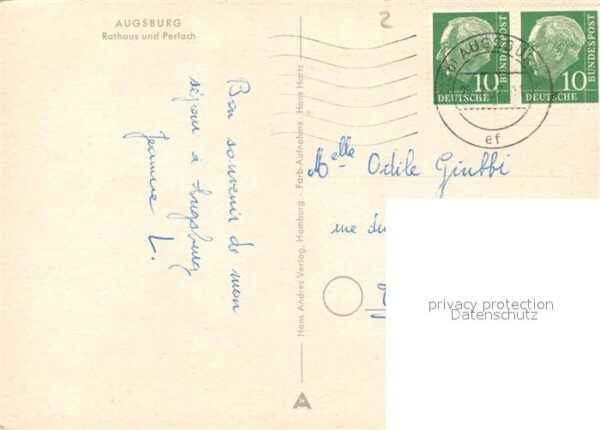 AUGSBURG
Rathaus und Perlach
Bon souvenir de mon
séjour à Augsburg
Jeanne L.
Hans Andres Verlag, Hamburg · Farb-Aufnahme: Hans Hartz
2
AUGSBURG
ef
10
DEUTSCHE
BUNDESPOST
10
DEUTSCHE
BUNDESPOST
Melle Odile Giubbi
rue du
privacy protection
Datenschutz
H